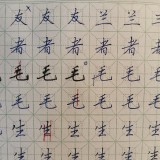 友友友兰兰兰
者者者者者者
毛毛毛毛毛毛
毛毛毛毛毛毛
生生生生生生